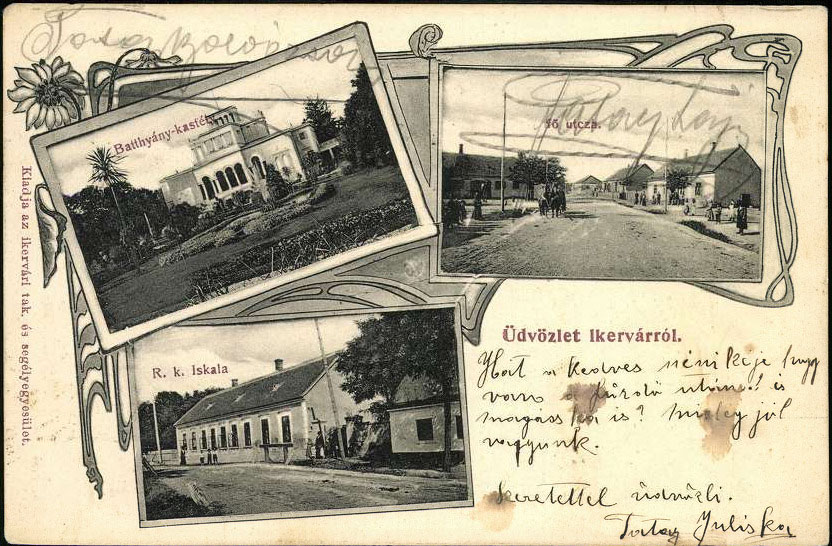 Batthyány-kastély
fő utcza.
R. k. Iskala
Kiadja az ikervári tak. és segélyegyesület.
Üdvözlet Ikervárról.
Hát a kedves nénikéje hogy
van a fürdő után! és
is? mi jól
vagyunk.
Szeretettel üdvözli.
Tatay Juliska